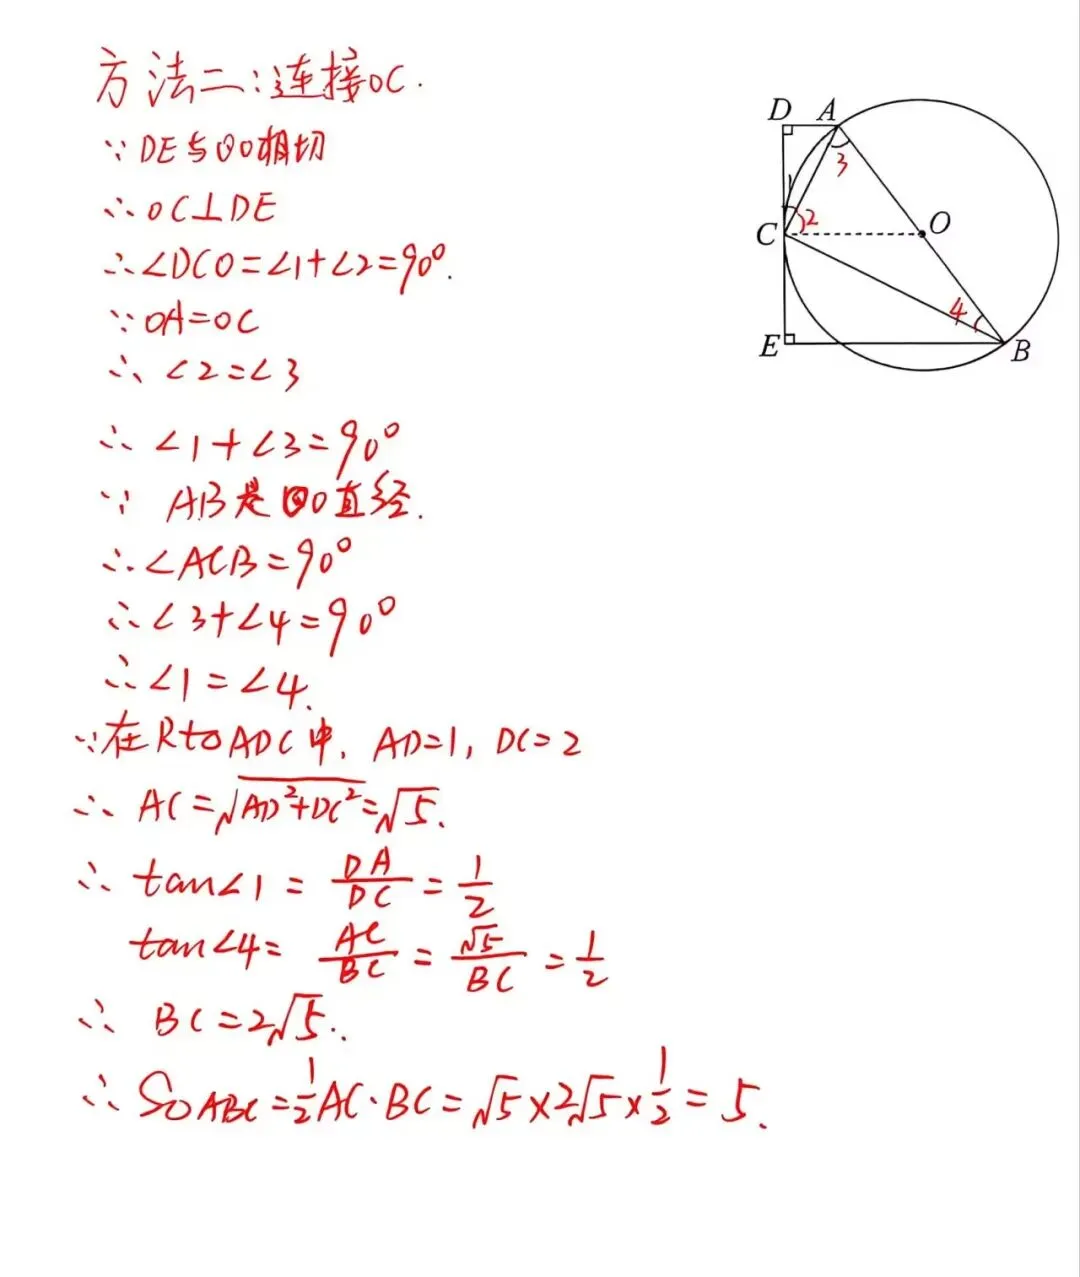 方法二:连接OC.
∵ DE与⊙O相切
∴ OC⊥DE
∴∠DCO=∠1+∠2=90°.
∵ OA=OC
∴ ∠2=∠3
∴ ∠1+∠3=90°
∵ AB是⊙O直径.
∴∠ACB=90°
∴∠3+∠4=90°
∴∠1=∠4.
∵在Rt△ADC中, AD=1, DC=2
∴ AC=√(AD²+DC²)=√5.
∴ tan∠1 = DA/DC = 1/2
tan∠4= AC/BC = √5/BC = 1/2
∴ BC=2√5.
∴ S△ABC=1/2AC·BC=√5×2√5×1/2=5.
D A
3
1
C 2 O
4
E B